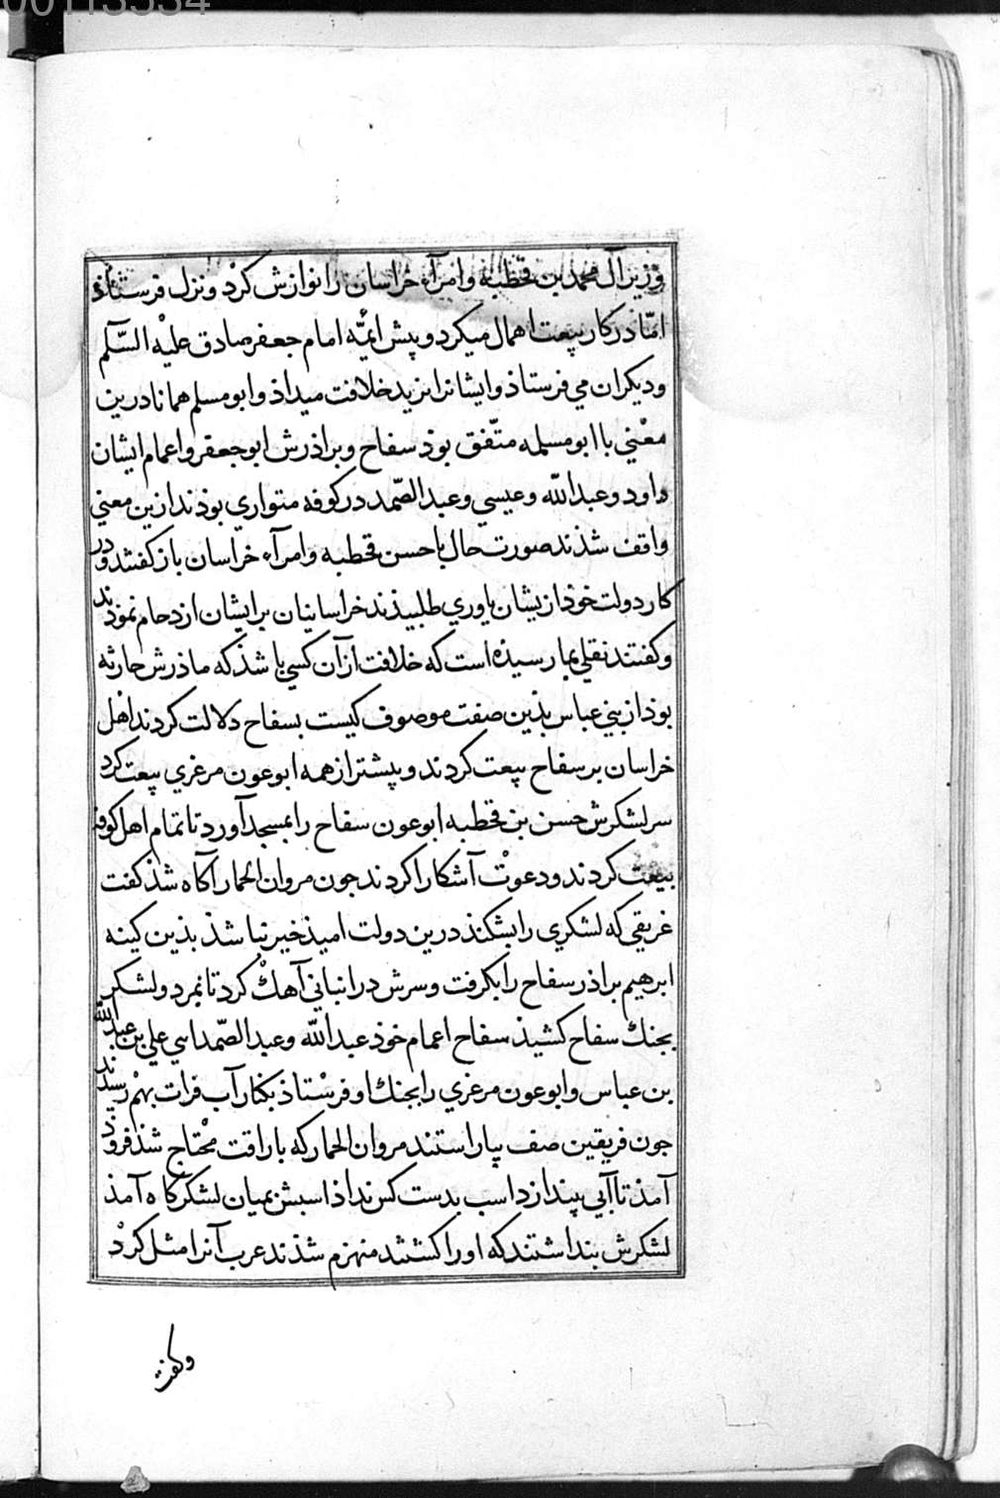 00113534
وزیر آل محمد بن قحطبه وامرآء خراسان را نوازش کرد ونزل فرستاذ
امّا در کار بیعت اهمال میکرد و پیش ایمّه امام جعفر صادق علیْه السَّلم
ودیکران می فرستاذ وایشانرا بر ید خلافت میداذ وابو مسلم همانا درین
معْنی با ابو مسلمه متّفق بوذ سفاح وبراذرش ابو جعفر واعمام ایشان
داود وعبد الله وعیسی وعبد الصّمد در کوفه متواری بوذند ازین معنی
واقف شذند صورت حال با حسن قحطبه وامرآء خراسان باز کفتند ودر
کار دولت خوذ ازیشان یاوری طلبیذند خراسانیان بر ایشان ازدحام نموذند
وکفتند نقلی بما رسیذه است که خلافت ازآن کسی باشذ که ماذرش حارثه
بوذ از بنی عباس بذین صفت موصوف کیست بسفاح دلالت کردند اهْل
خراسان بر سفاح بیعت کردند و پیشتر از همه ابو عون مرغزی بیعت کرد
سر لشکرش حسن بن قحطبه ابو عون سفاح را بمسجد آورد تا تمام اهل کوفه
بیعت کردند ودعوتْ آشکارا کردند جون مروان الحمار آکاه شذ کفت
غریقی که لشکری را بشکنذ درین دولت امیذ خیر نباشذ بذین کینه
ابرهیم براذر سفاح را بکرفت وسرش در انبانی آهکْ کرد تا بمرد ولشکر
بجنك سفاح کشیذ سفاح اعمام خوذ عبد الله وعبد الصّمد اسی علی بن عبد الله
بن عباس وابو عون مرغزی را بجنك او فرسْتاذ بکنار آب فرات بهمْ رسیدند
جون فریقین صف بیاراستند مروان الحمار که باراقت محْتاج شذ فروذ
آمذ تا آبی بیندازد اسب بدست کس نداذ اسبش بمیان لشکرکاه آمذ
لشکرش بنداشتند که اورا کشتند منهزم شذند عرب آنرا مثل کردْ
وکفت